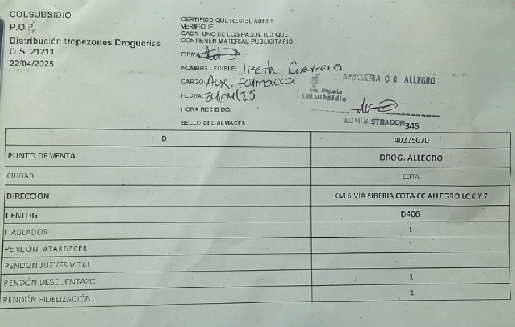 COLSUBSIDIO
P.O.P
Distribución tropezones Droguerias
O.S. 21211
22/04/2025
CERTIFICO QUE RECIBI ABRI Y
VERIFIQUE
CADA UNO DE LOS PAQUETES QUE
CONTIENEN MATERIAL PUBLICITARIO
FIRMA
NOMBRE LEGIBLE: Lizeth Guerrero
CARGO: Aux. farmacia
FECHA:
HORA RECIBIDO:
SELLO DEL ALMACEN
DROGUERIA C.C. ALLEGRO
colsubsidio
ADMINISTRADOR 345
ID
PUNTO DE VENTA DROG. ALLEGRO
CIUDAD COTA
DIRECCION KM 6 VIA SIBERIA COTA CC ALLEGRO LC 6 Y 7
CENLOG D406
HABLADOR 1
PENDÓN ATARDECER 1
PENDÓN JUEVES VITAL
PENDÓN DESCUENTAZO 1
PENDÓN FIDELIZACIÓN 1